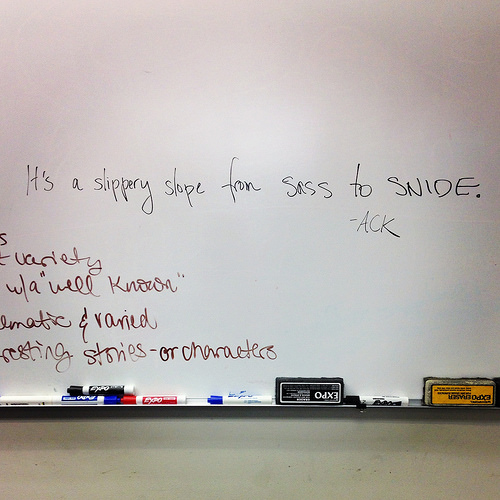 It's a slippery slope from SASS to SNIDE.
-ACK
variety
w/a "well known"
ematic & varied
resting stories - or characters
EXPO
EXPO
EXPO
EXPO ERASER